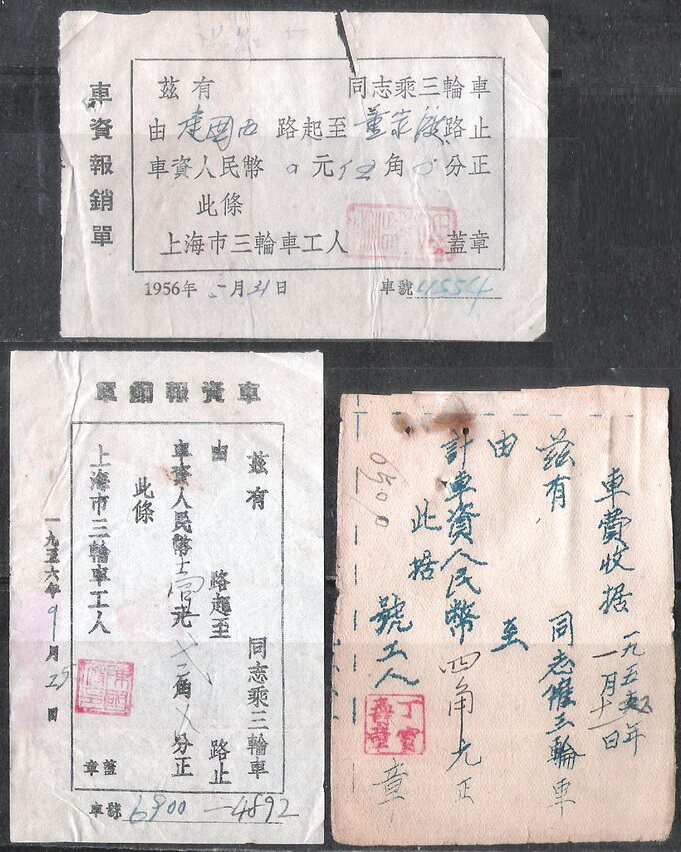 車資報銷單
茲有 同志乘三輪車
由建國西路起至董家渡路止
車資人民幣0元伍角0分正
此條
上海市三輪車工人 蓋章
1956年 月31日 車號
車資報銷單
茲有 同志乘三輪車
由 路起至 路止
車資人民幣壹元弍角 分正
此條
上海市三輪車工人 蓋章
一九五六年9月25日
車號6900-4892
車費收据
一九五 年
一月十二日
茲有 同志僱三輪車
由 至
計車資人民幣四角九正
此据
號工人 章